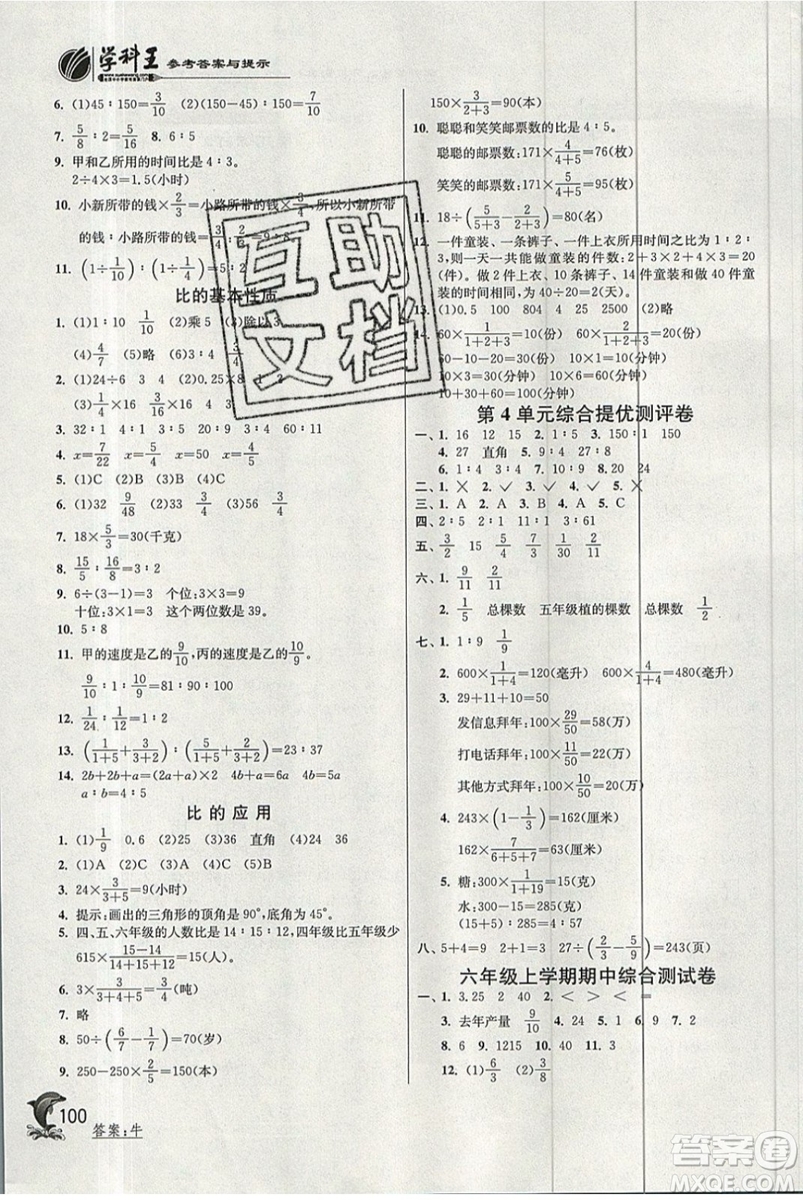 学科王 参考答案与提示
6. (1)45∶150=3/10 (2)(150-45)∶150=7/10
7. 5/8∶2=5/16 8. 6∶5
9. 甲和乙所用的时间比是4∶3。
2÷4×3=1.5(小时)
10. 小新所带的钱×2/3=小路所带的钱×3/4,所以小新所带
的钱∶小路所带的钱=
11. (1÷1/5)∶(1÷1/4)
比的基本性质
1. (1)1∶10 1/10 (2)乘5 (3)除以3
(4)4/7 (5)略 (6)1∶3 1∶9
2. (1)24÷6 3 4 (2)0.25×8
(3)
3. 32∶1 4∶1 15∶2 20∶9 3∶4 60∶1
4. x=7/22 x=5/4 x=50
5. (1)C (2)B (3)C
6. (1)32 9/48 (2)33 3/4 (3)
7. 18×5/3=30(千克)
8. 15/5∶16/8=3∶2
9. 6÷(3-1)=3 个位:3×3=9
十位:3×1=3 这个两位数是39。
10. 5∶8
11. 甲的速度是乙的9/10,丙的速度是乙的9/10。
9/10∶1∶9/10=90∶100∶81
12. 1/24∶1/12=1∶2
13. (1/(1+5)+3/(3+2))∶(5/(1+5)+2/(3+2))=23∶37
14. 2b+2b+a=(2b+a)×2 4b+a=4b+2a-1/2a
a∶b=4∶1
比的应用
1. (1)1/9 0.6 (2)25 (3)36 直角 (4)24 36
2. (1)A (2)C (3)A (4)C (5)B
3. 24×3/(3+5)=9(小时)
4. 提示:画出的三角形的顶角是90°,底角为45°。
5. 四、五、六年级的人数比是14∶15∶12,四年级比五年级少
615×(15-14)/(14+15+12)=15(人)。
6. 2×3/(3+4+5)=1/2(吨)
7. 略
8. 50÷(6/7-1/7)=70(岁)
9. 250-250×2/5=150(本)
100
答案:牛
150×3/(2+3)=90(本)
10. 聪聪和笑笑邮票数的比是4∶5。
聪聪的邮票数:171×4/(4+5)=76(枚)
笑笑的邮票数:171×5/(4+5)=95(枚)
11. 18÷(5/(5+3)-2/(2+3))=80(名)
12. 一件童装、一条裤子、一件上衣所用时间之比为1∶2∶
3,则一天一共能做童装的件数:2×1+3×2+4×3=20
(件)。做2件上衣、10条裤子、14件童装与做40件童
装的时间相等,为40÷20=2(天)。
13. (1)0.5 100 804 4 25 2500 (2)略
14. 60×1/(1+2+3)=10(份) 60×2/(1+2+3)=20(份)
60-10-20=30(份) 10×1=10(分钟)
20×1.5=30(分钟) 30×2=60(分钟)
10+30+60=100(分钟)
第4单元综合提优测评卷
一、1. 16 12 15 2. 1∶5 3. 150∶1 150
4. 27 直角 5. 9∶4 27∶8
6. 1∶4 3∶4 7. 9∶10 10∶9 8. 20 24
二、1. ✕ 2. ✓ 3. ✓ 4. ✓ 5. ✕
三、1. A 2. A 3. B 4. A 5. C
四、2∶5 2∶1 11∶1 3∶61
五、3/2 15 5/4 7/3 1/30 2/11
六、1. 9/11 2/11
2. 1/5 总棵数 五年级植的棵数 总棵数 1/2
七、1. 1∶9 1/9
2. 600×1/(1+4)=120(毫升) 600×4/(1+4)=480(毫升)
3. 29+11+10=50
发信息拜年:100×29/50=58(万)
打电话拜年:100×11/50=22(万)
其他方式拜年:100×10/50=20(万)
4. 243×(1-1/3)=162(厘米)
162×7/(6+5+7)=63(厘米)
5. 糖:300×1/(1+19)=15(克)
水:300-15=285(克)
(15+5)∶285=4∶57
八、5+4=9 2+1=3 27÷(2/3-5/9)=243(页)
六年级上学期期中综合测试卷
一、1. 3.25 2 40 2. < > < =
3. 去年产量 9/10 4. 24 5. 1 6. 9 7. 2
8. 6 9. 1215 10. 40 11. 3
12. (1)6/3 (2)3/2
互助文档
答案圈
MXQE.COM